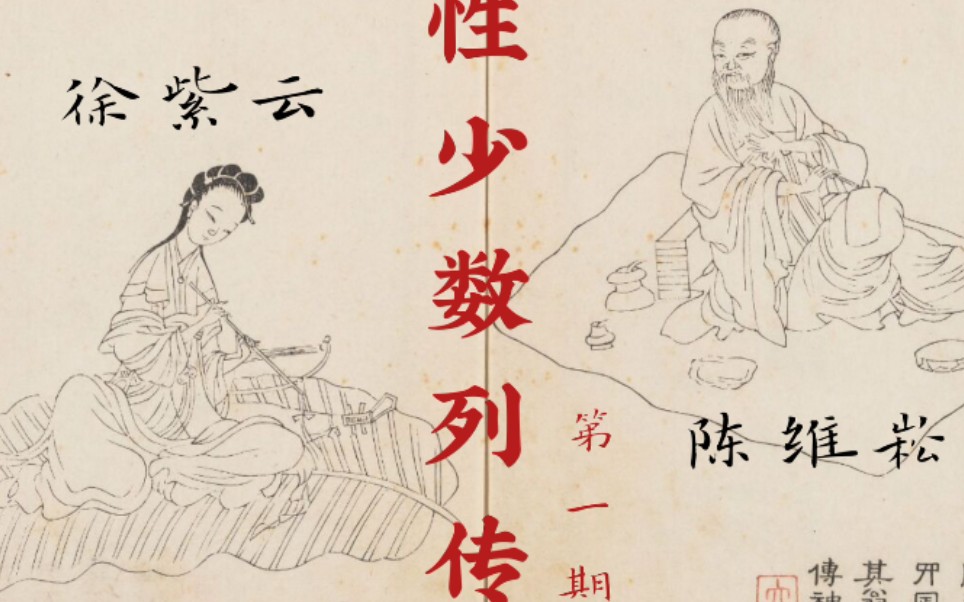 徐紫云
性少数列传
第一期
陈维崧
傳神